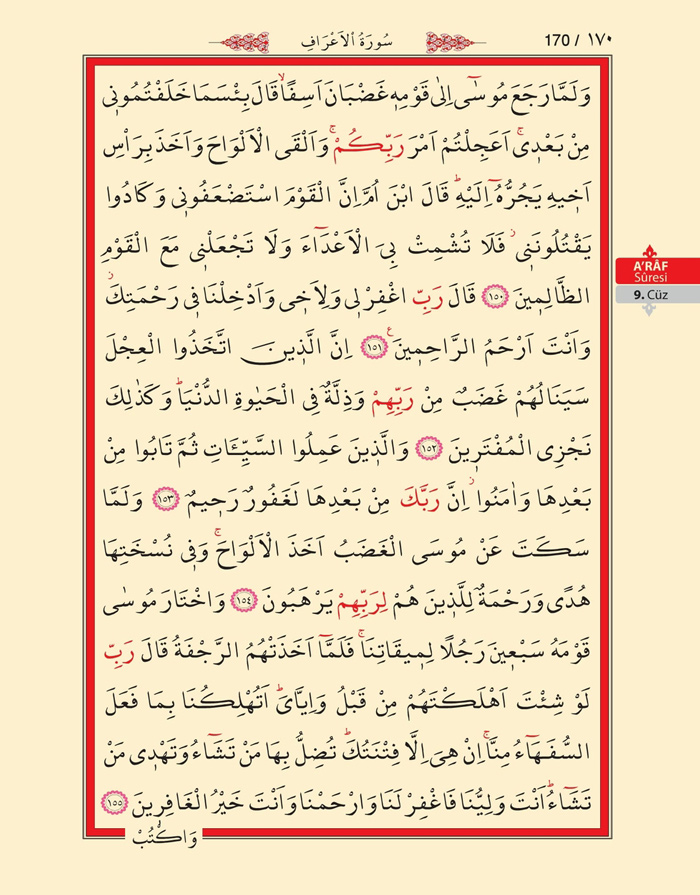 170 / ١٧٠
سُورَةُ الْاَعْرَافِ
وَلَمَّا رَجَعَ مُوسٰٓى اِلٰى قَوْمِهٖ غَضْبَانَ اَسِفًاۙ قَالَ بِئْسَمَا خَلَفْتُمُونٖي
مِنْ بَعْدٖيۚ اَعَجِلْتُمْ اَمْرَ رَبِّكُمْۚ وَاَلْقَى الْاَلْوَاحَ وَاَخَذَ بِرَأْسِ
اَخٖيهِ يَجُرُّهُٓ اِلَيْهِۜ قَالَ ابْنَ اُمَّ اِنَّ الْقَوْمَ اسْتَضْعَفُونٖي وَكَادُوا
يَقْتُلُونَنٖيۘ فَلَا تُشْمِتْ بِيَ الْاَعْدَٓاءَ وَلَا تَجْعَلْنٖي مَعَ الْقَوْمِ
الظَّالِمٖينَ ﴿١٥٠﴾ قَالَ رَبِّ اغْفِرْ لٖي وَلِاَخٖي وَاَدْخِلْنَا فٖي رَحْمَتِكَۘ
وَاَنْتَ اَرْحَمُ الرَّاحِمٖينَ۟ ﴿١٥١﴾ اِنَّ الَّذٖينَ اتَّخَذُوا الْعِجْلَ
سَيَنَالُهُمْ غَضَبٌ مِنْ رَبِّهِمْ وَذِلَّةٌ فِي الْحَيٰوةِ الدُّنْيَاۜ وَكَذٰلِكَ
نَجْزِي الْمُفْتَرٖينَ ﴿١٥٢﴾ وَالَّذٖينَ عَمِلُوا السَّيِّـَٔاتِ ثُمَّ تَابُوا مِنْ
بَعْدِهَا وَاٰمَنُواۘ اِنَّ رَبَّكَ مِنْ بَعْدِهَا لَغَفُورٌ رَحٖيمٌ ﴿١٥٣﴾ وَلَمَّا
سَكَتَ عَنْ مُوسَى الْغَضَبُ اَخَذَ الْاَلْوَاحَۚ وَفٖي نُسْخَتِهَا
هُدًى وَرَحْمَةٌ لِلَّذٖينَ هُمْ لِرَبِّهِمْ يَرْهَبُونَ ﴿١٥٤﴾ وَاخْتَارَ مُوسٰى
قَوْمَهُ سَبْعٖينَ رَجُلًا لِمٖيقَاتِنَاۚ فَلَمَّٓا اَخَذَتْهُمُ الرَّجْفَةُ قَالَ رَبِّ
لَوْ شِئْتَ اَهْلَكْتَهُمْ مِنْ قَبْلُ وَاِيَّايَۜ اَتُهْلِكُنَا بِمَا فَعَلَ
السُّفَهَٓاءُ مِنَّاۚ اِنْ هِيَ اِلَّا فِتْنَتُكَۜ تُضِلُّ بِهَا مَنْ تَشَٓاءُ وَتَهْدٖي مَنْ
تَشَٓاءُۜ اَنْتَ وَلِيُّنَا فَاغْفِرْ لَنَا وَارْحَمْنَا وَاَنْتَ خَيْرُ الْغَافِرٖينَ ﴿١٥٥﴾
وَاكْتُبْ
A'RÂF
Sûresi
9. Cüz